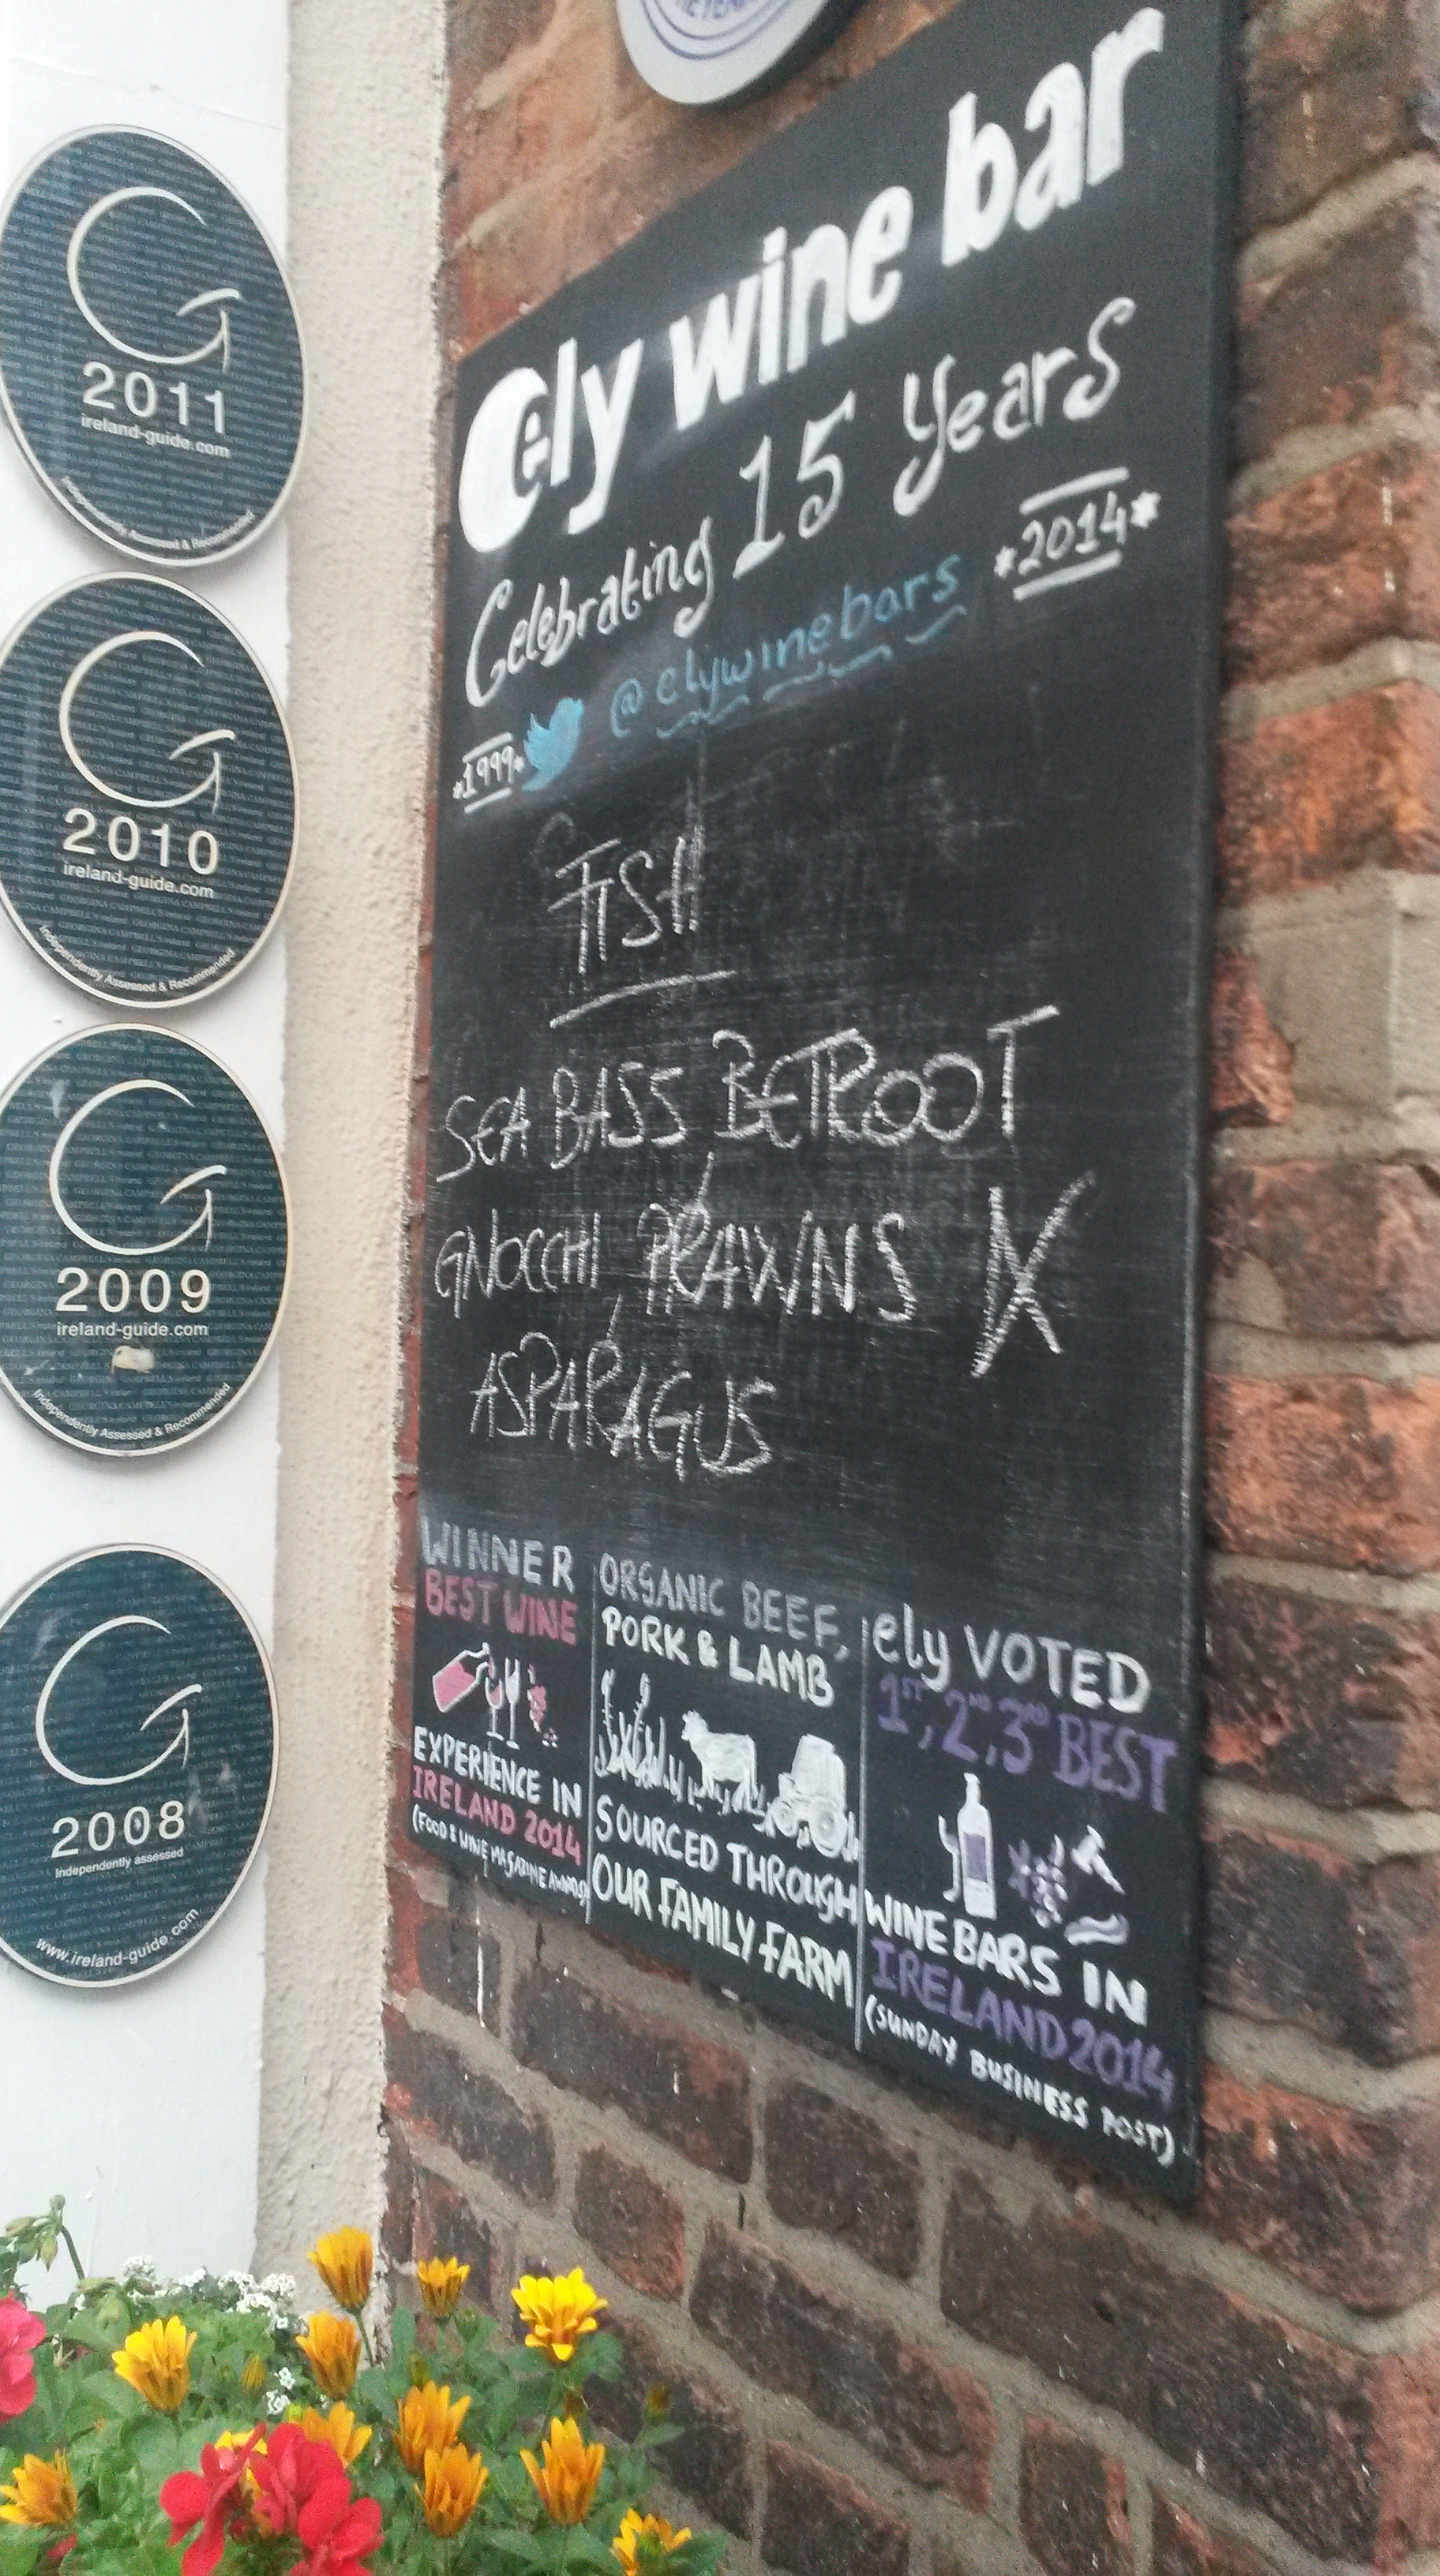 G
2011
ireland-guide.com
Independently Assessed & Recommended
G
2010
ireland-guide.com
Independently Assessed & Recommended
G
2009
ireland-guide.com
Independently Assessed & Recommended
G
2008
Independently assessed
www.ireland-guide.com
ely wine bar
Celebrating 15 Years
*1999* @elywinebars *2014*
FISH
SEA BASS BETROOT
GNOCCHI PRAWNS X
ASPARAGUS
WINNER
BEST WINE
EXPERIENCE IN
IRELAND 2014
(FOOD & WINE MAGAZINE AWARDS)
ORGANIC BEEF,
PORK & LAMB
SOURCED THROUGH
OUR FAMILY FARM
ely VOTED
1ST, 2ND, 3RD BEST
WINE BARS IN
IRELAND 2014
(SUNDAY BUSINESS POST)